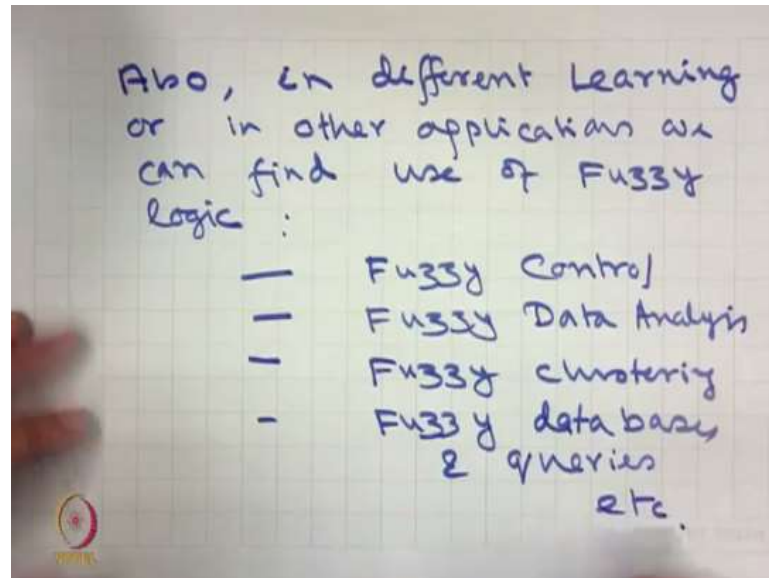 Also, in different Learning
or in other applications we
can find use of Fuzzy
logic :
— Fuzzy Control
— Fuzzy Data Analysis
— Fuzzy clustering
- Fuzzy databases
& queries
etc.
NPTEL